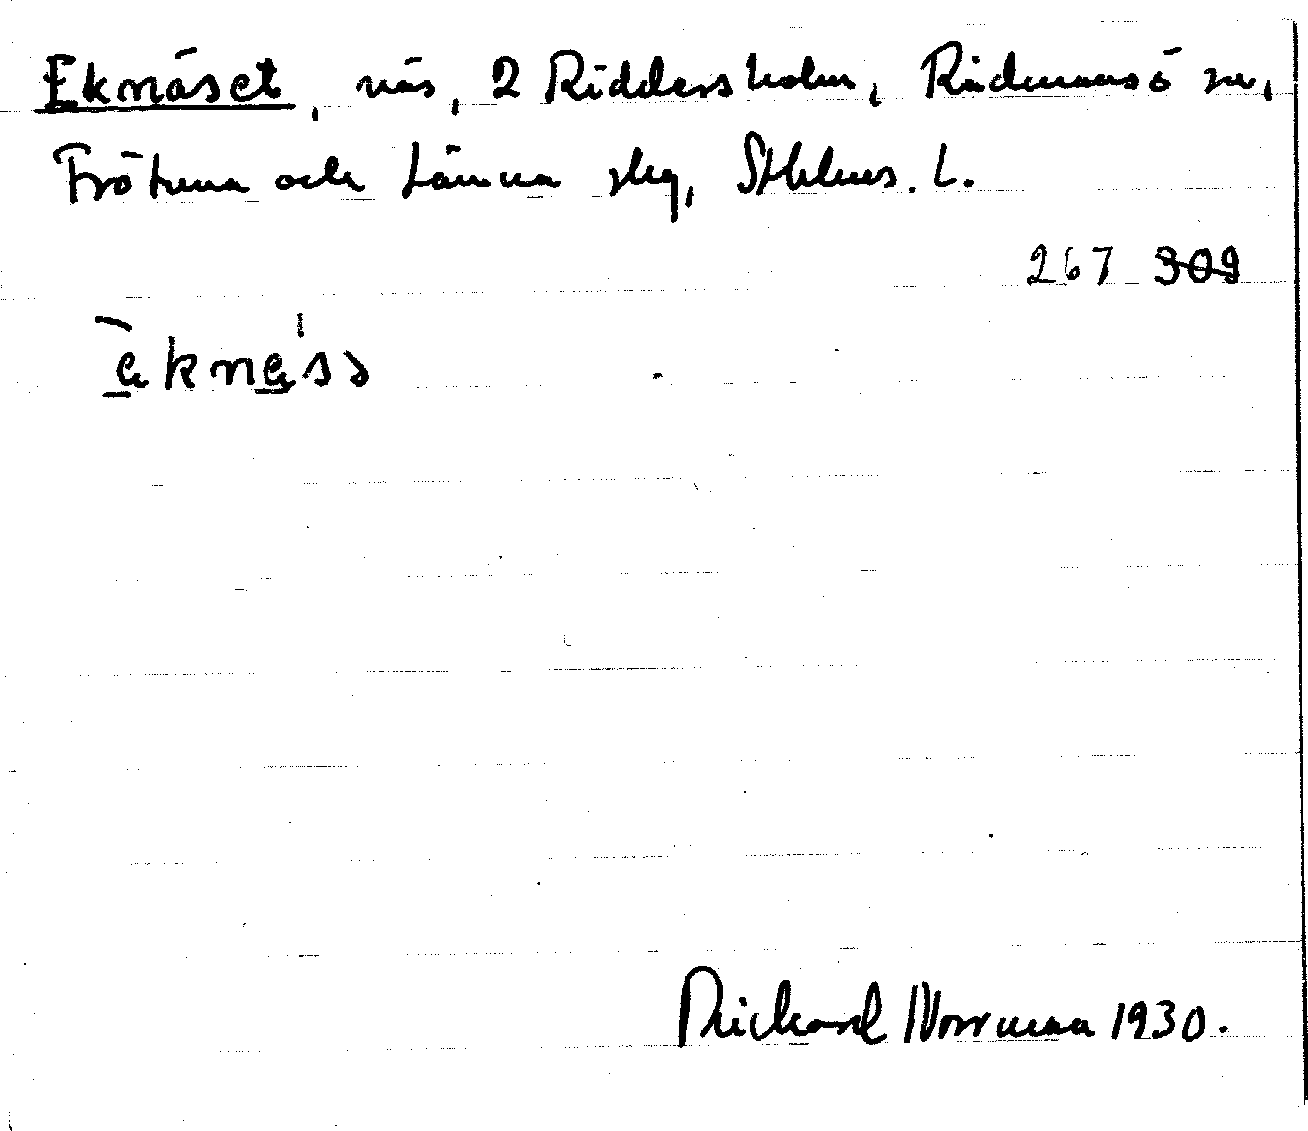 Eknäset, näs, 2 Riddersholm, Rådmansö sn,
Frötuna och Länna skg, Sthlms. L.
267 309
èknes̀s
Rickard Norrman 1930.